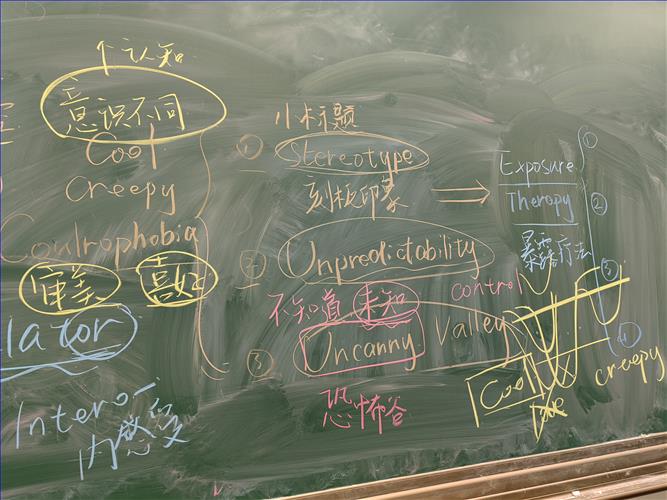 个认知
意识不同
Cool
creepy
Coulrophobia
审美 喜好
lator
Intero-
内感受
小标题
① Stereotype
刻板印象
② Unpredictability
不知道 未知
③ Uncanny Valley
恐怖谷
Exposure ①
Therapy ②
暴露疗法
③
④
control
Cool
creepy